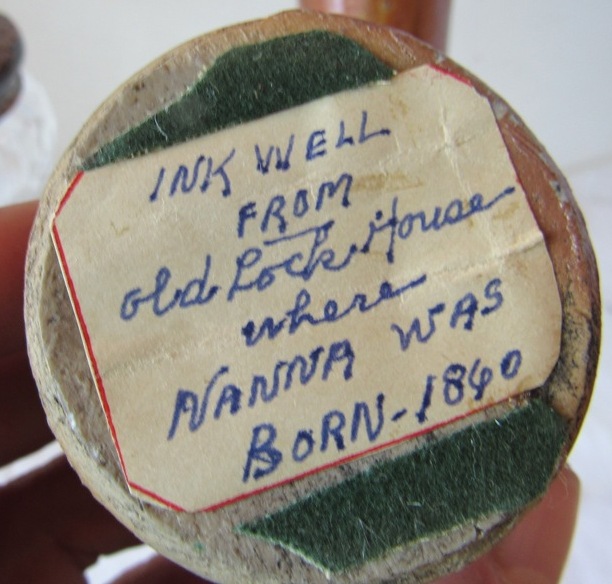 INK WELL
FROM
old Lock House
where
NANNA WAS
BORN-1840